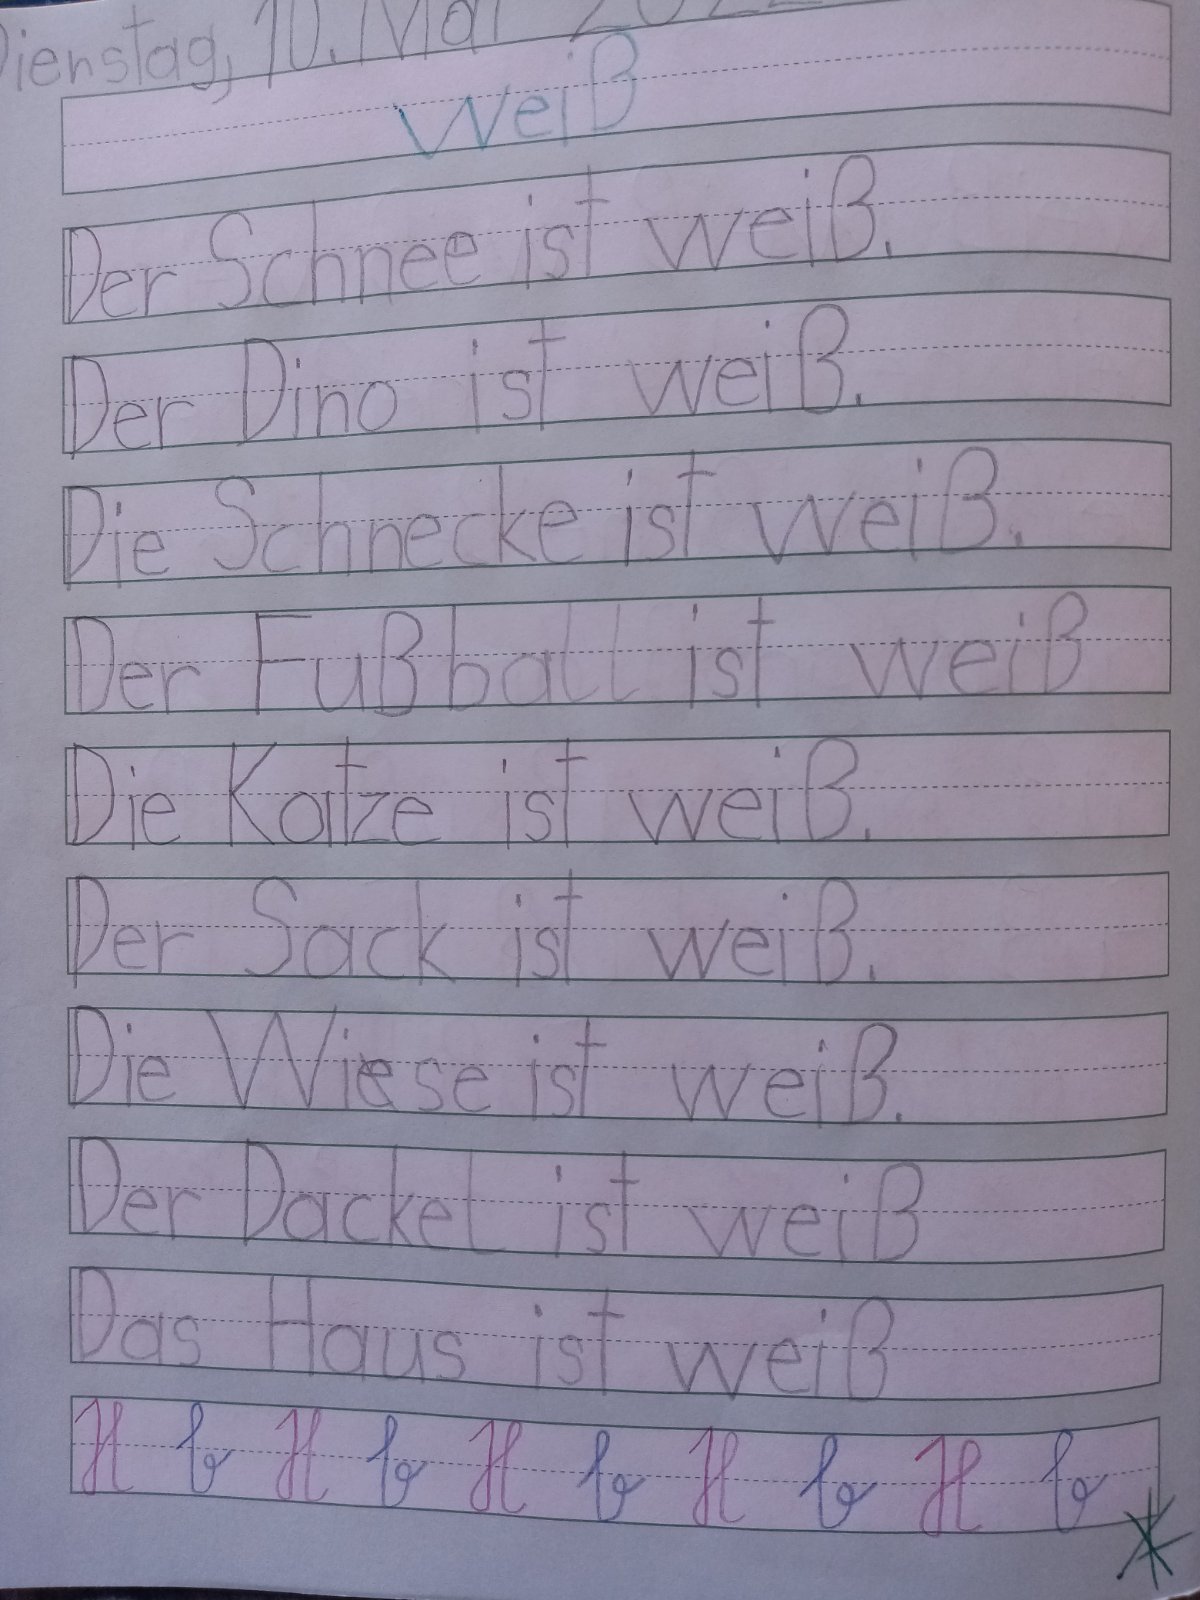 Dienstag, 10. Mai 2022
Weiß
Der Schnee ist weiß.
Der Dino ist weiß.
Die Schnecke ist weiß.
Der Fußball ist weiß
Die Katze ist weiß.
Der Sack ist weiß.
Die Wiese ist weiß.
Der Dackel ist weiß
Das Haus ist weiß
H b H b H b H b H b